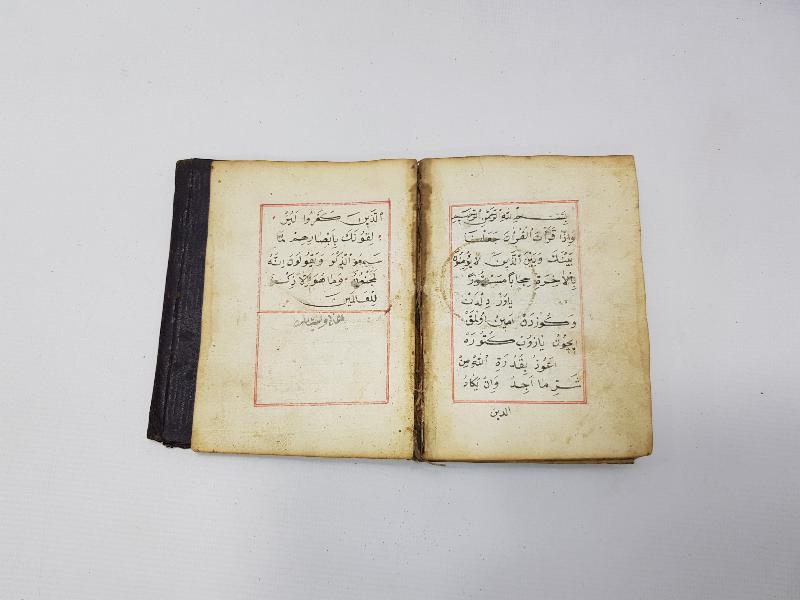 بسم الله الرحمن الرحيم
واذا قرأت القران جعلنا
بينك وبين الذين لا يؤمنون
بالاخرة حجابا مستورا
ياوز دلدن
وكوزدن امين اولمق
ايچون يازوب كتوره
اعوذ بقدرة الله من
شر ما اجد وان يكاد
الذين
الذين كفروا ليز
لقونك بابصارهم لما
سمعوا الذكر ويقولون انه
لمجنون وما هو الا ذكر
للعالمين